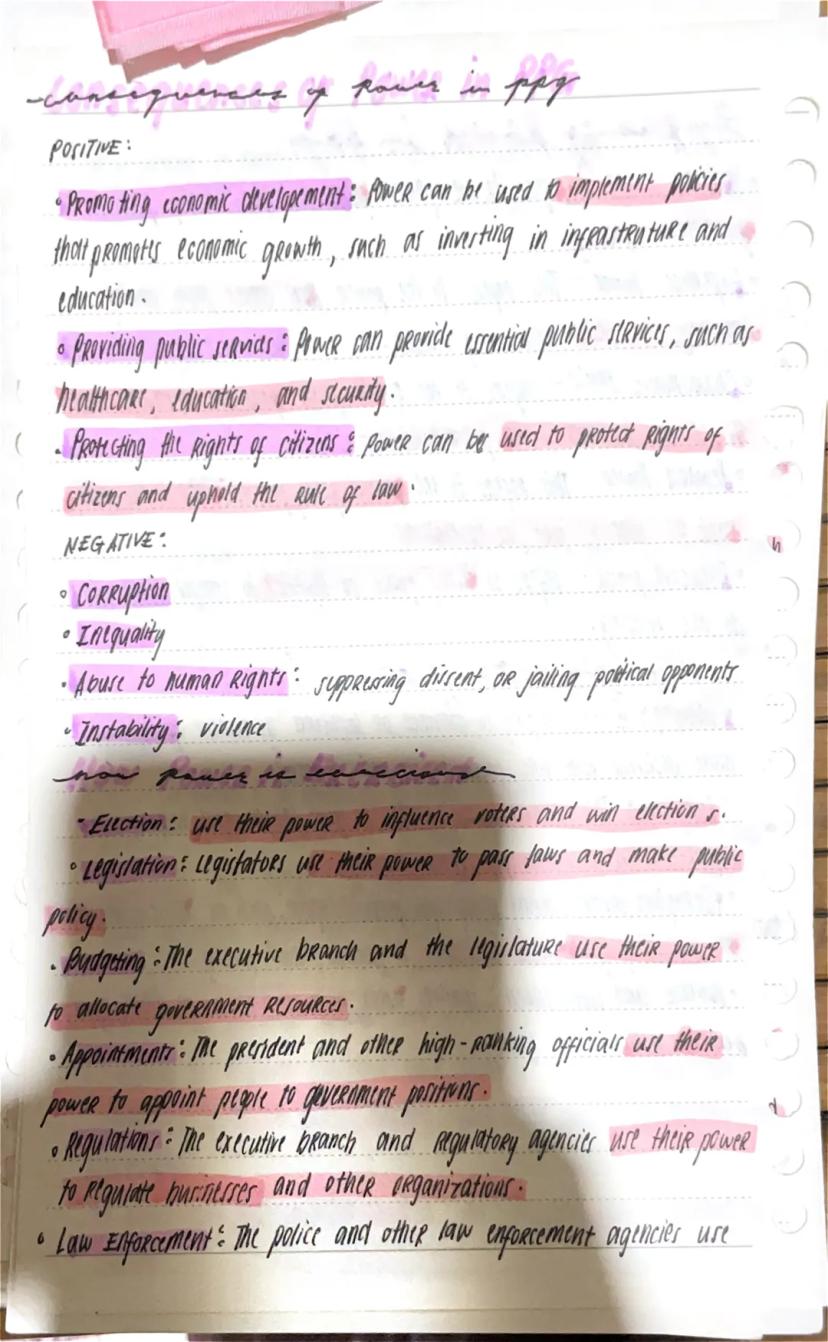 Consequences of Power in PPG
POSITIVE:
• Promoting economic developement: Power can be used to implement policies
that promotes economic growth, such as investing in infrastruture and
education.
• Providing public services: Power can provide essential public services, such as
healthcare, education, and security.
• Protecting the Rights of citizens: Power can be used to protect rights of
citizens and uphold the rule of law.
NEGATIVE:
• Corruption
• Inequality
• Abuse to human Rights: suppressing dissent, or jailing political opponents
• Instability: violence
How Power is Exercised
• Election: use their power to influence voters and win elections.
• Legislation: Legistators use their power to pass laws and make public
policy.
• Budgeting: The executive branch and the legislature use their power
to allocate government resources.
• Appointments: The president and other high-ranking officials use their
power to appoint people to government positions.
• Regulations: The executive branch and regulatory agencies use their power
to regulate businesses and other organizations.
• Law Enforcement: The police and other law enforcement agencies use